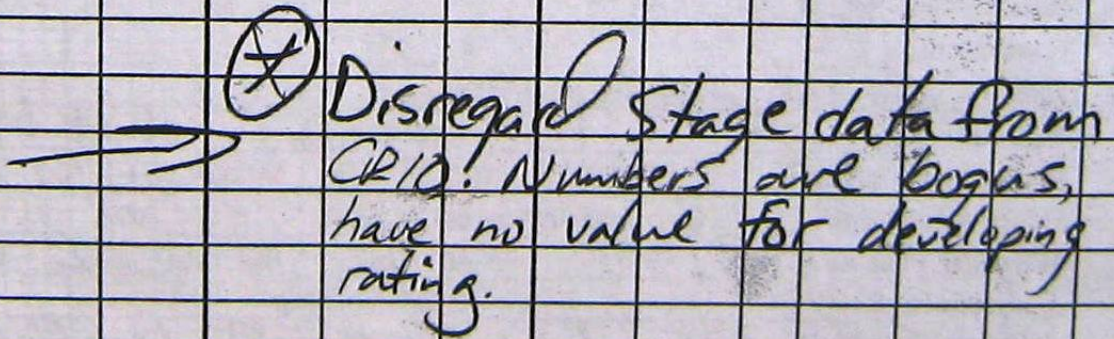 Disregard Stage data from
CR10! Numbers are bogus,
have no value for developing
rating.